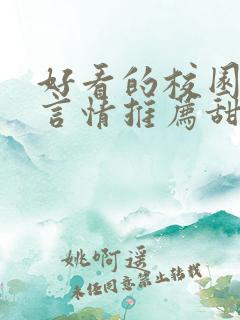 好看的校园
言情推荐甜
姚啊遥
未经同意禁止转载